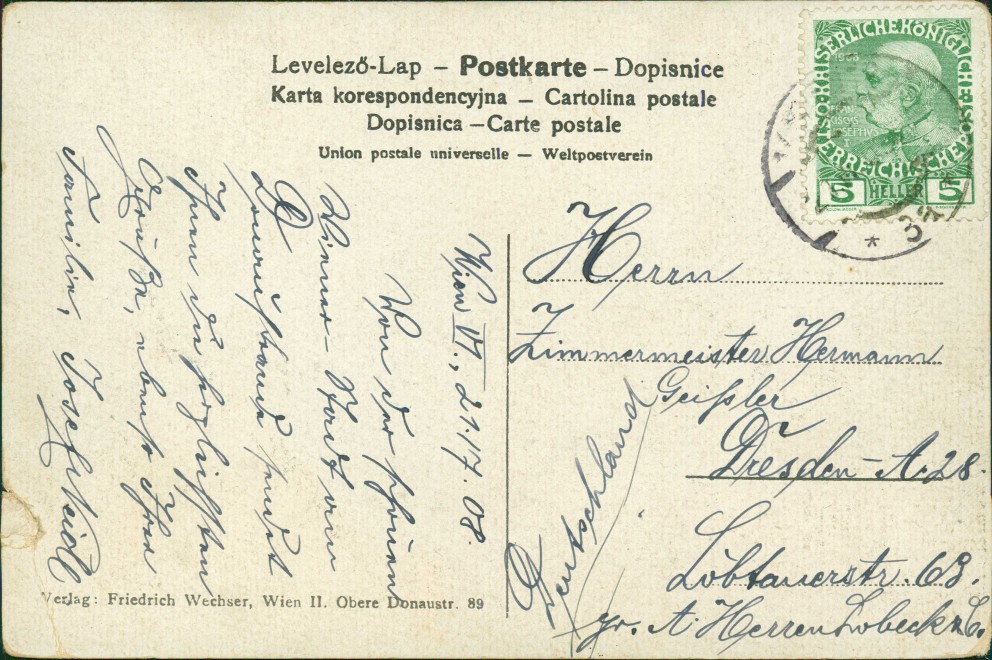 Levelező-Lap – Postkarte – Dopisnice
Karta korespondencyjna — Cartolina postale
Dopisnica — Carte postale
Union postale universelle — Weltpostverein
KAISERLICHEKÖNIGLICHE
ÖSTERREICHISCHE POST
1908
FRAN
CISCVS
IOSEPHVS
5 HELLER 5
Wien VI., 21./7. 08.
Von der schönen
Wiener-Stadt am
Donaustrande sendet
Ihnen die herzlichsten
Grüße, nebst Ihrer
Familie, Josef
Herrn
Zimmermeister Hermann
Geißler
Dresden-A. 28.
Löbtauerstr. 63.
gr. A. Herren Lobeck & Co.
Deutschland
Verlag: Friedrich Wechser, Wien II. Obere Donaustr. 89